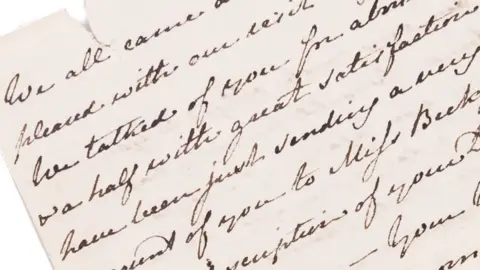 We all came a
pleased with our visit
We talked of you for about
& a half with great satisfaction
have been just sending a very
count of you to Miss Beck
scription of your D
— Your